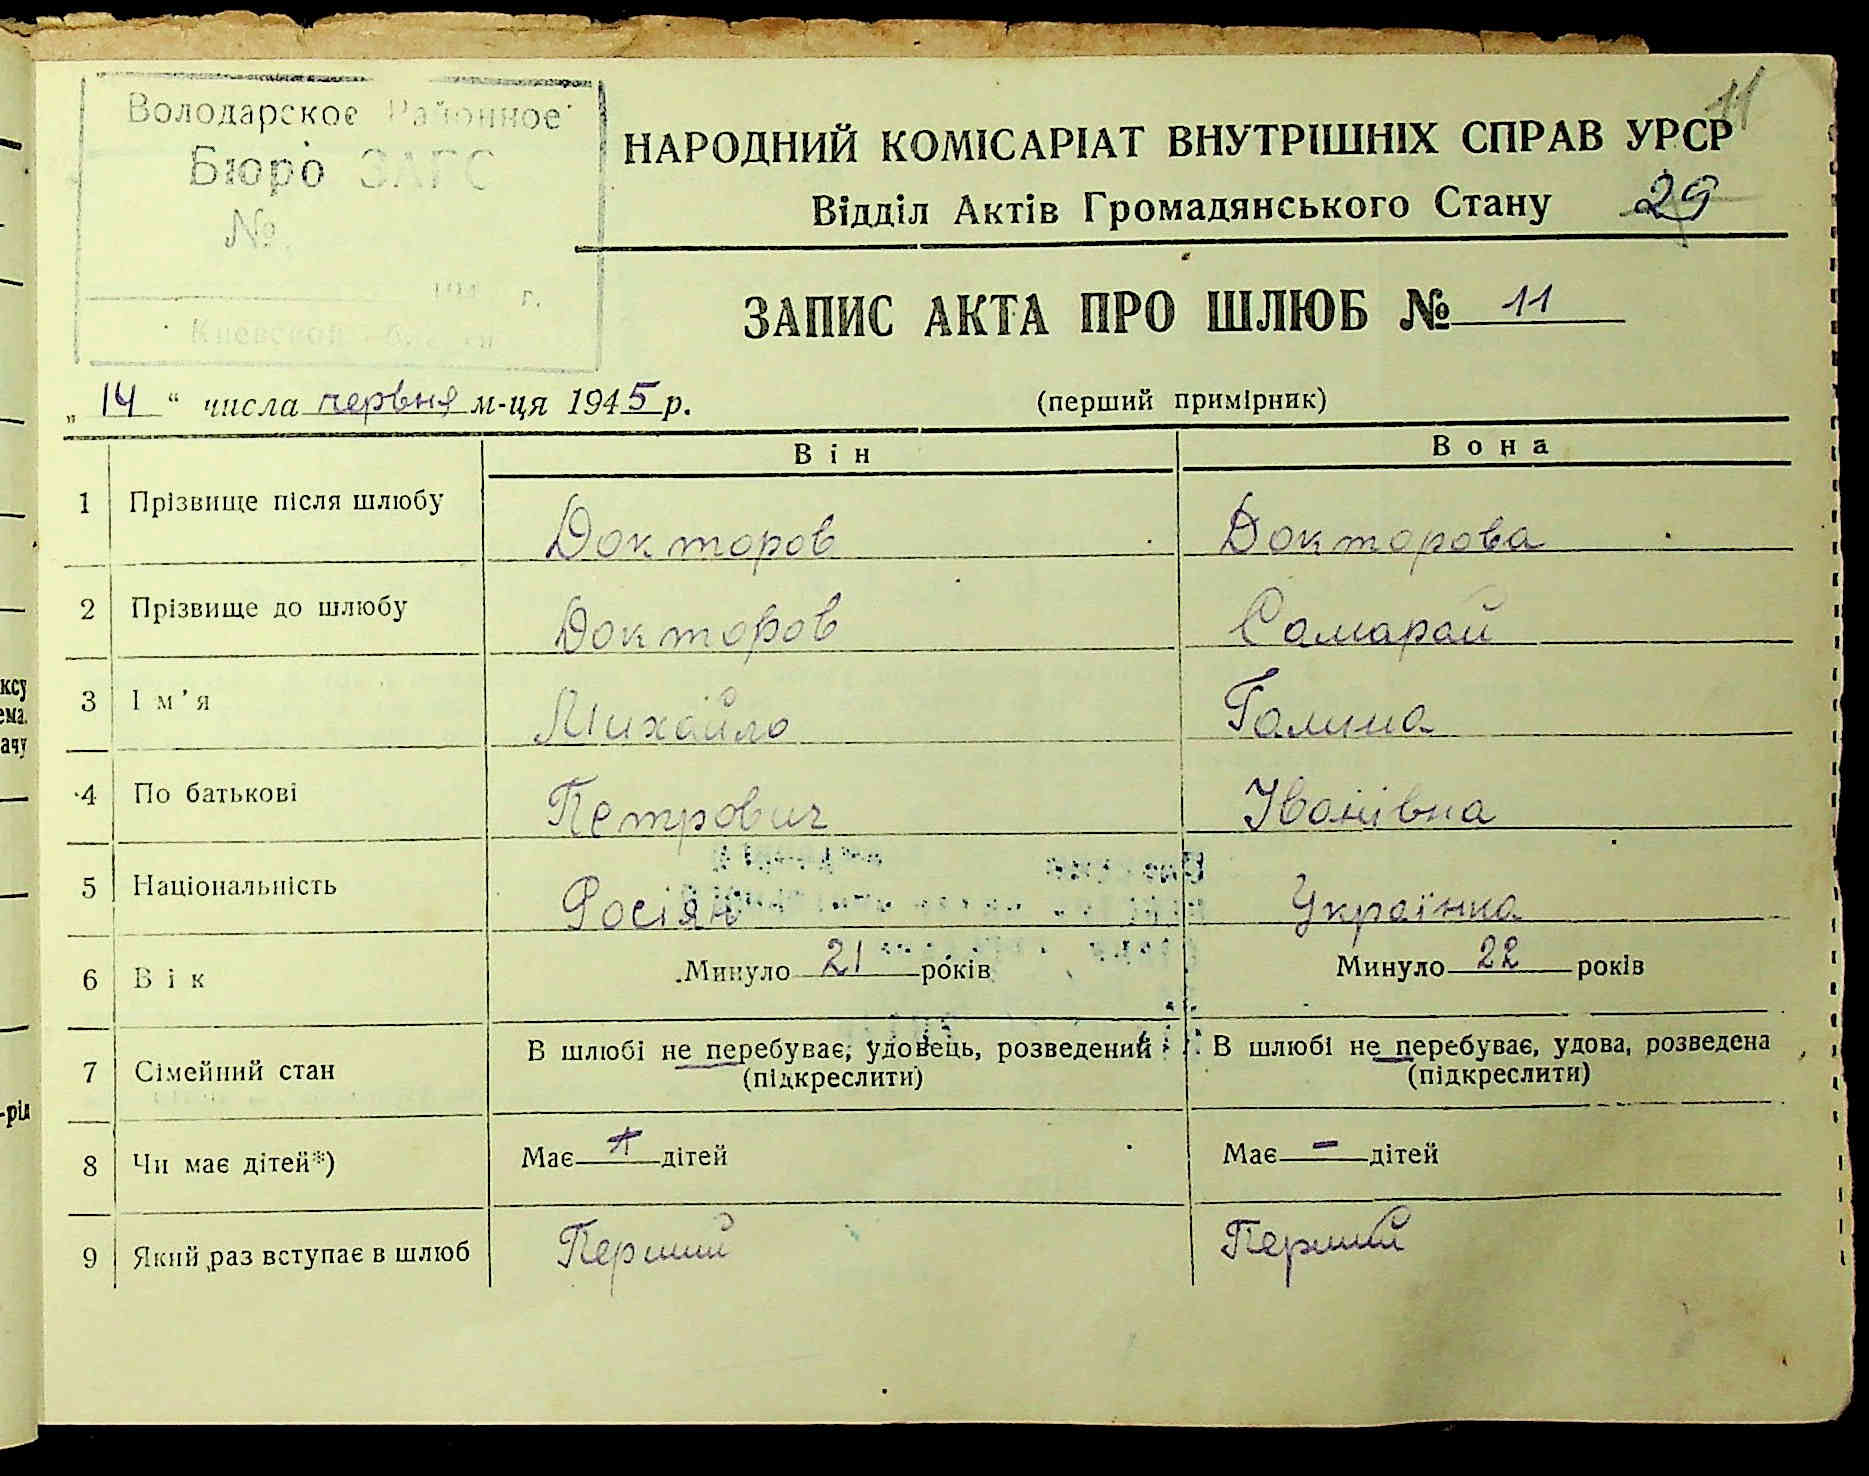 11
Володарское Районное
Бюро ЗАГС
№
194 г.
Киевской области
НАРОДНИЙ КОМІСАРІАТ ВНУТРІШНІХ СПРАВ УРСР
Відділ Актів Громадянського Стану 29
ЗАПИС АКТА ПРО ШЛЮБ № 11
„ 14 “ числа червня м-ця 1945 р. (перший примірник)
Він Вона
1 Прізвище після шлюбу Докторов Докторова
2 Прізвище до шлюбу Докторов Самарай
3 Ім’я Михайло Галина
4 По батькові Петрович Іванівна
5 Національність Росіян Українка
6 Вік Минуло 21 років Минуло 22 років
7 Сімейний стан В шлюбі не перебуває, удовець, розведений В шлюбі не перебуває, удова, розведена
(підкреслити) (підкреслити)
8 Чи має дітей*) Має дітей Має — дітей
9 Який раз вступає в шлюб Перший Перший
ксу
ема.
ачу
-ріл